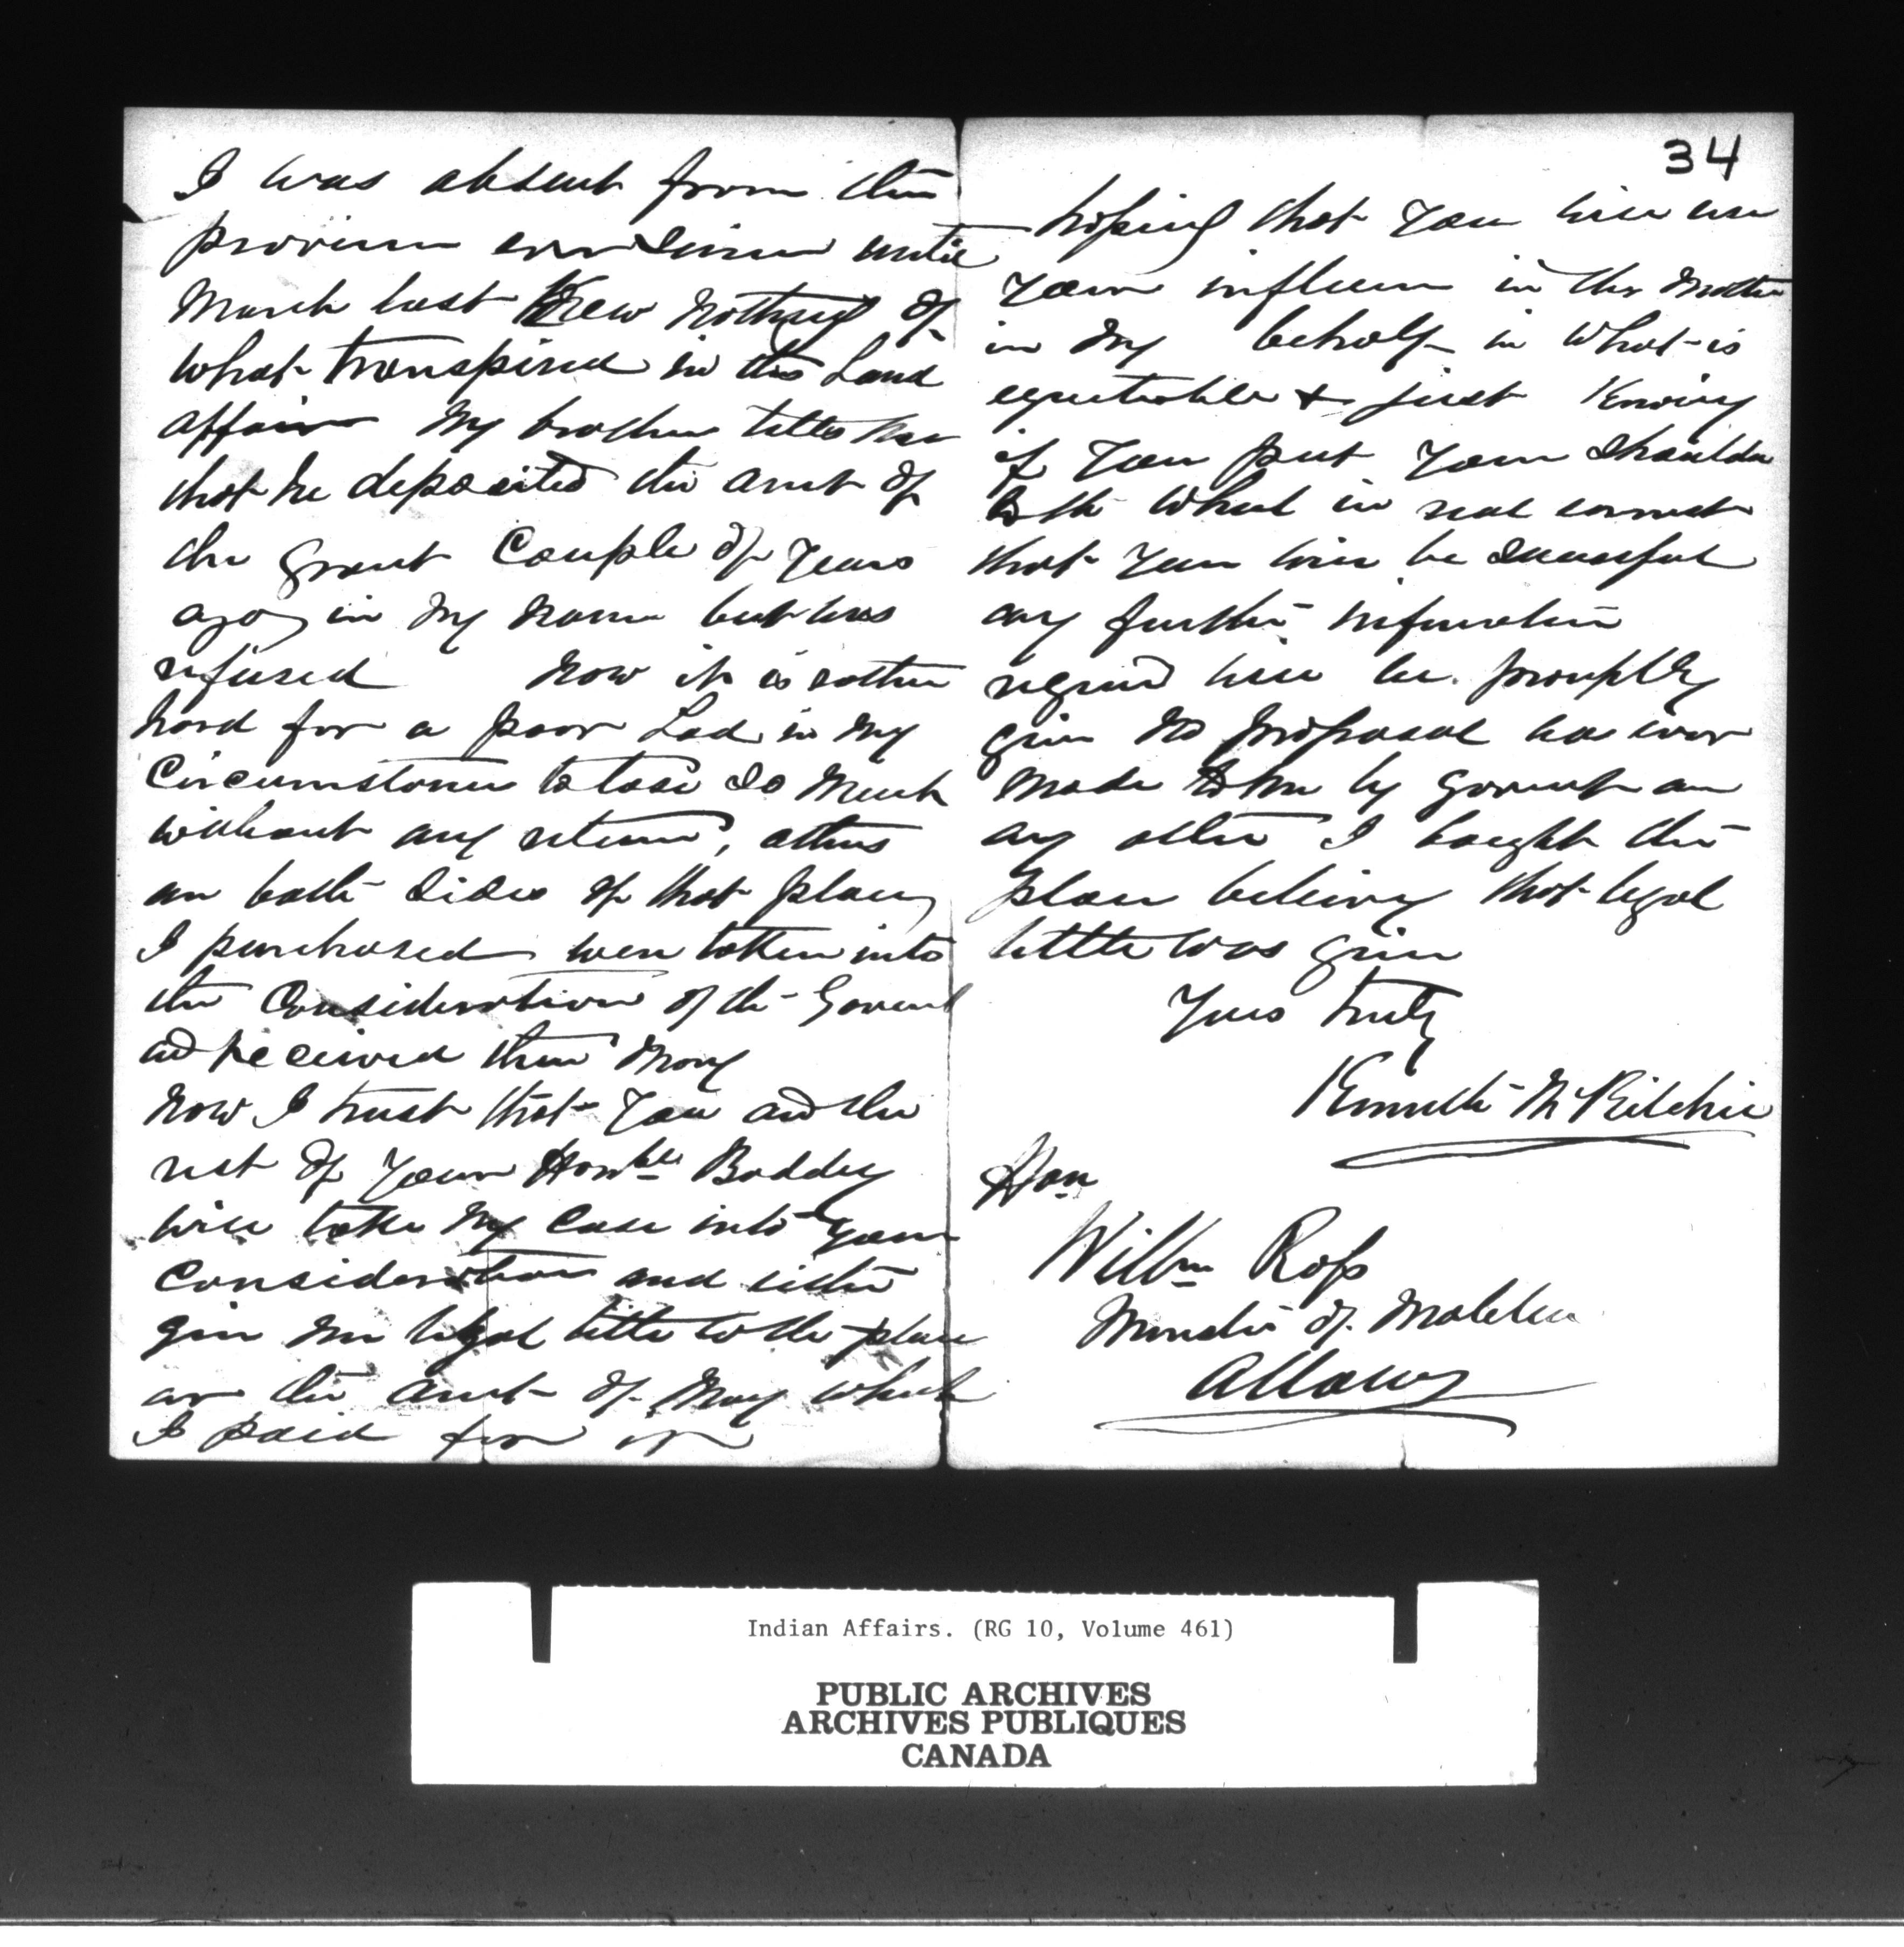 I was absent from the
province ever since until
March last Knew nothing of
what transpired in this Land
affair My brother tells me
that he deposited the amt of
the grant Couple of Years
ago in my name but was
refused Now it is rather
hard for a poor Lad in my
Circumstances to lose so much
without any return, others
on both sides of that place
I purchased were taken into
the Consideration of the Goverment
and received their Money
Now I trust that You and the
rest of Your Honble Boddy
will take my Case into Your
Consideration and either
give me legal tittle to the place
or the amt of Money which
I paid for it
34
hoping that You will use
Your influence in the matter
in my behalf in what is
equitable & just Knowing
if You put Your shoulder
to the wheel in real earnest
that You will be successful
any further information
required will be promptly
given No proposal was ever
made to him by goverment or
any other I bought the
place believing that legal
tittle was given
Yours truly
Kenneth McRitchie
Hon
Willm Ross
Minister of
Ottawa
Indian Affairs. (RG 10, Volume 461)
PUBLIC ARCHIVES
ARCHIVES PUBLIQUES
CANADA